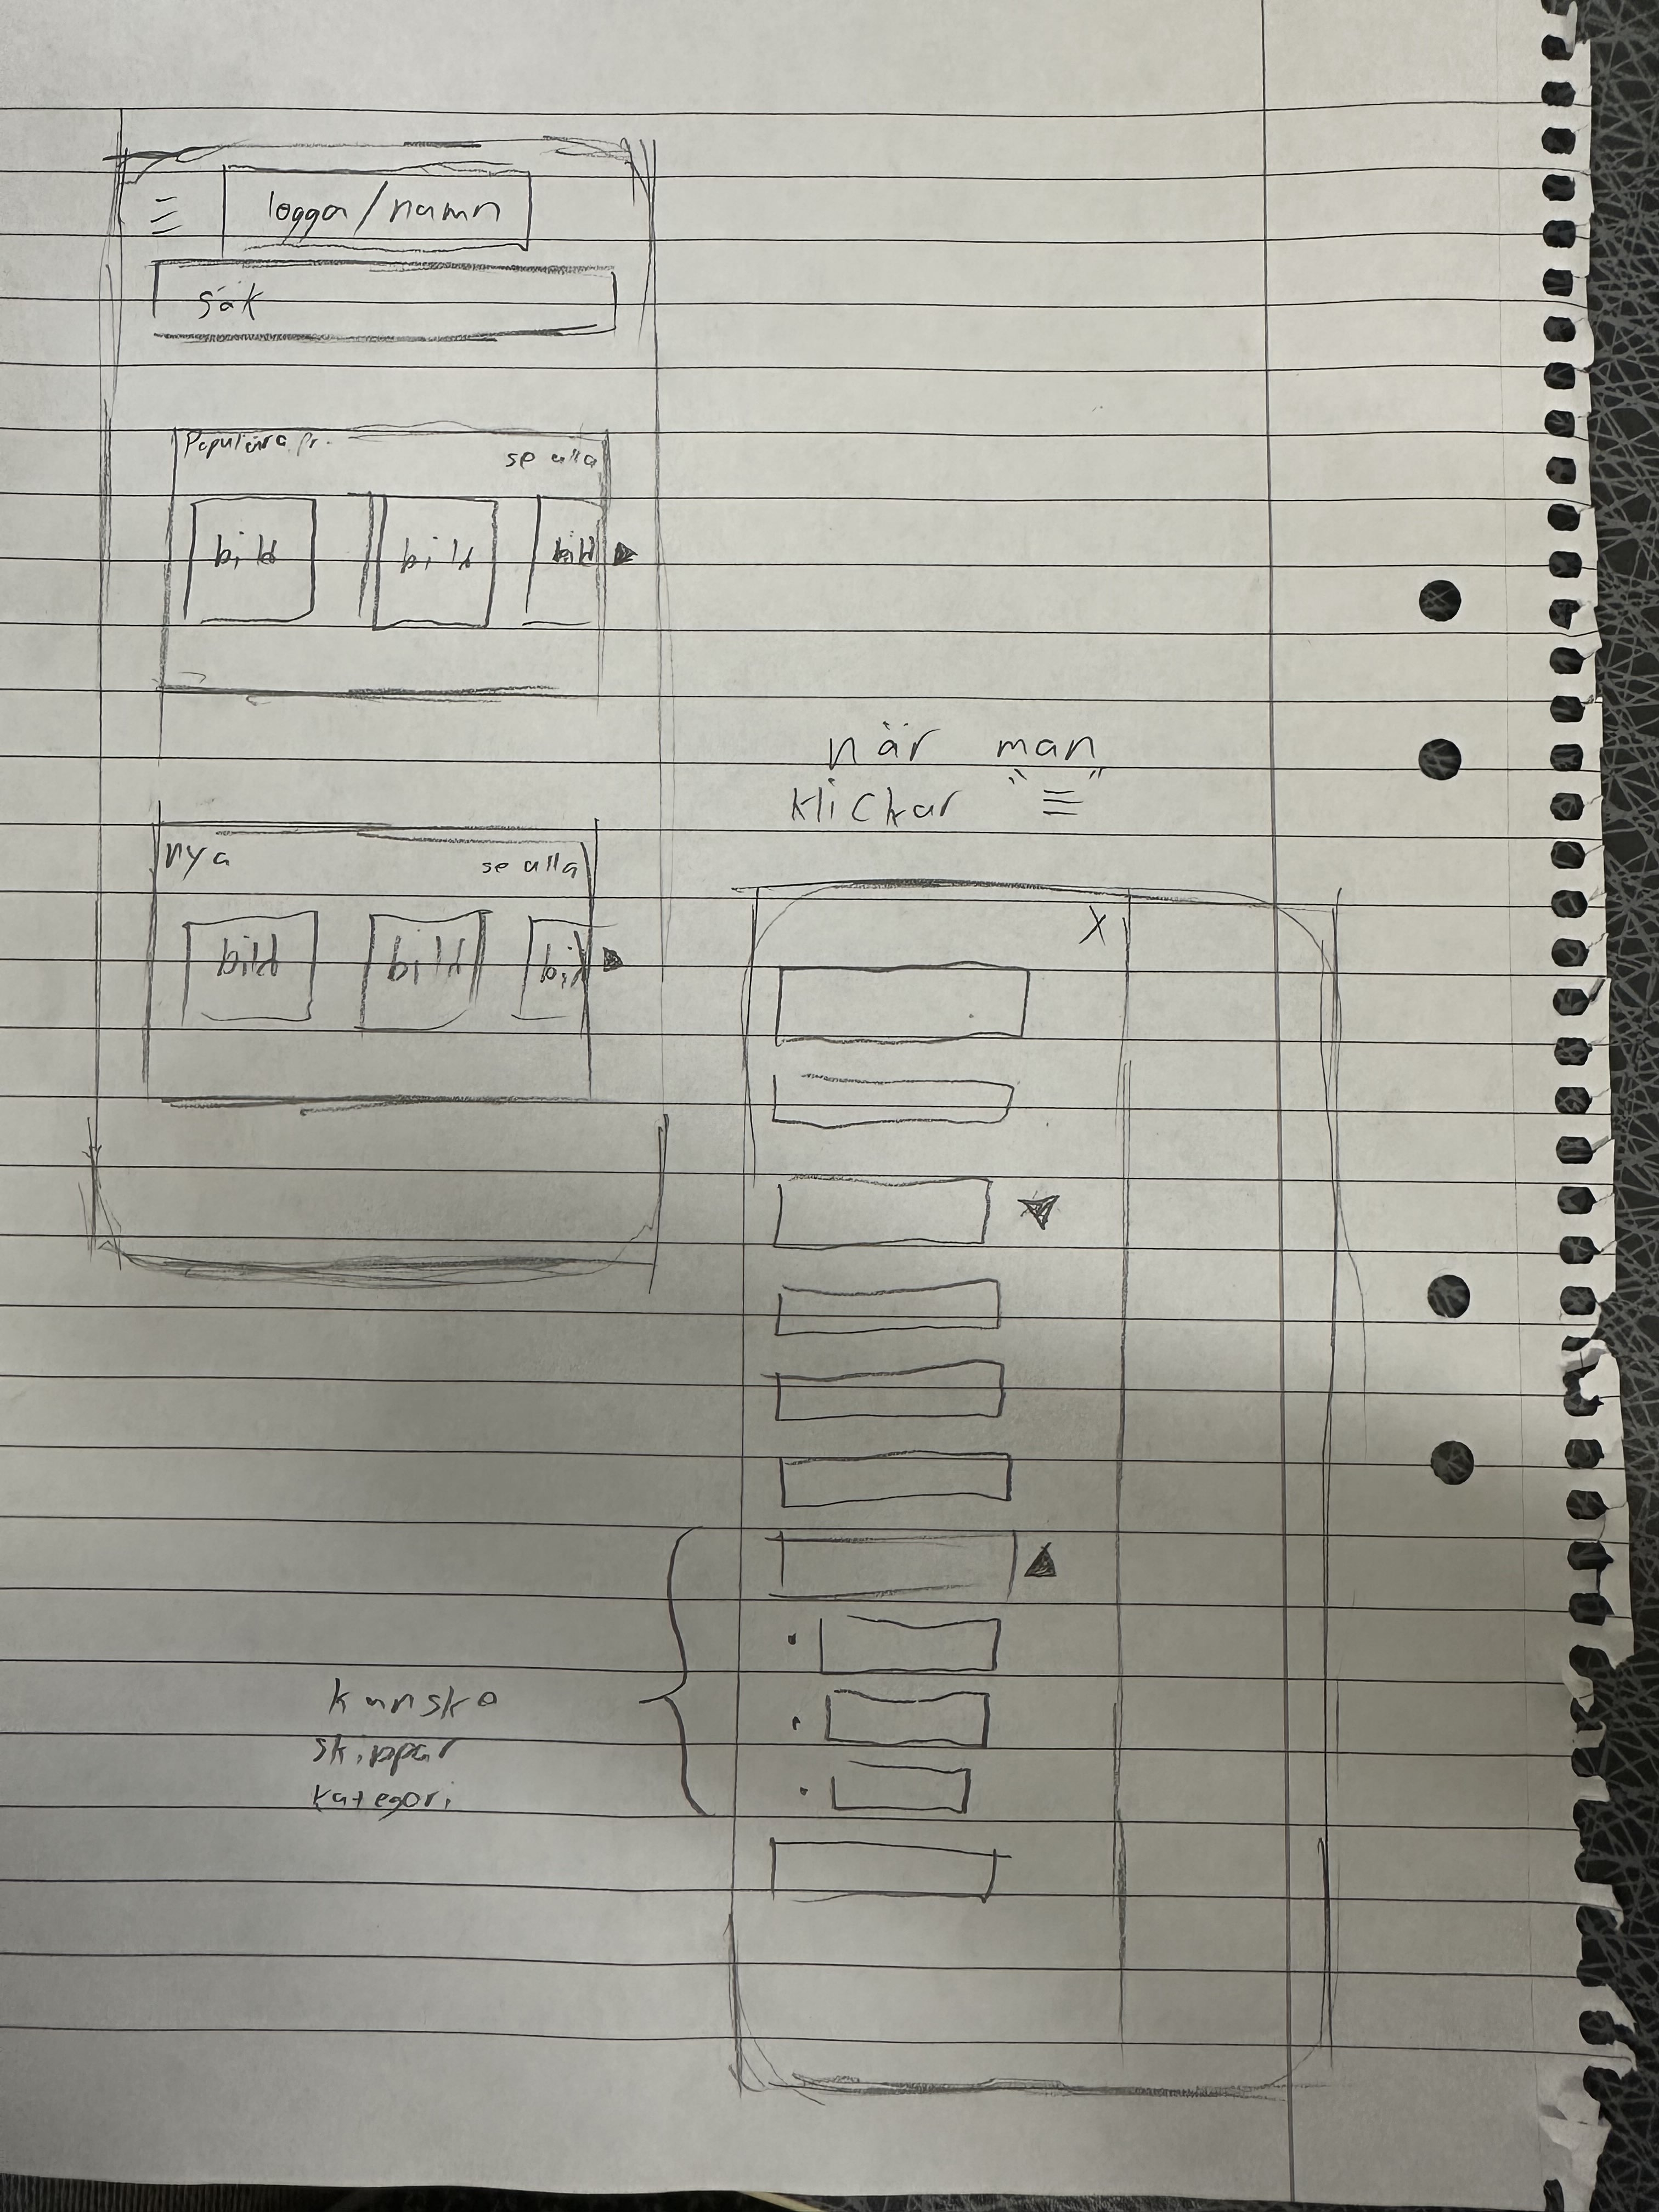 logga/namn
sök
Populära pr.
se alla
bild
bild
bild
nya
se alla
bild
bild
bil
när man
klickar "≡"
X
kanske
skippar
kategori